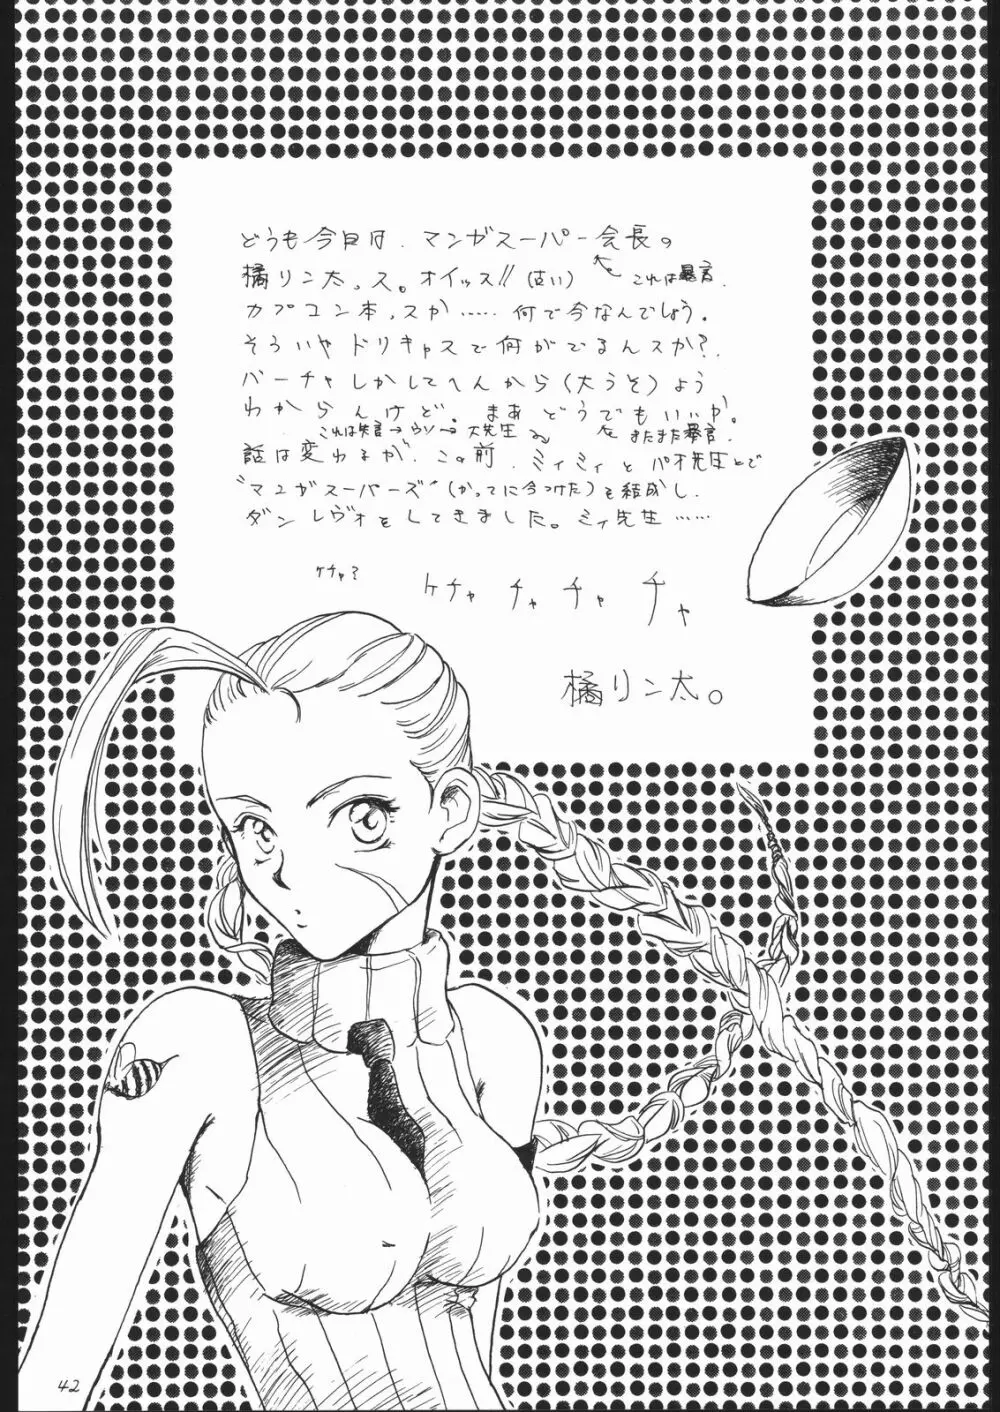 どうも今日は、マンガスーパー会長の
橘リン太っス。オイッス!!(古い)
これは暴言.
カプコン本っスか……何で今なんでしょう。
そういや ドリキャスで何がでるんスか?.
バーチャしかしてへんから(大うそ)よう
わからんけど。まあ どうでもいいか。
これは失言→ウソ→大先生
またまた暴言.
話は変わるが、この前、ミィミィと パオ先生とで
"マンガスーパーズ"(かってに今つけた)を結成し、
ダンレヴォをしてきました。ミィ先生……
ケチャ?
ケチャ チャ チャ チャ
橘リン太。
42